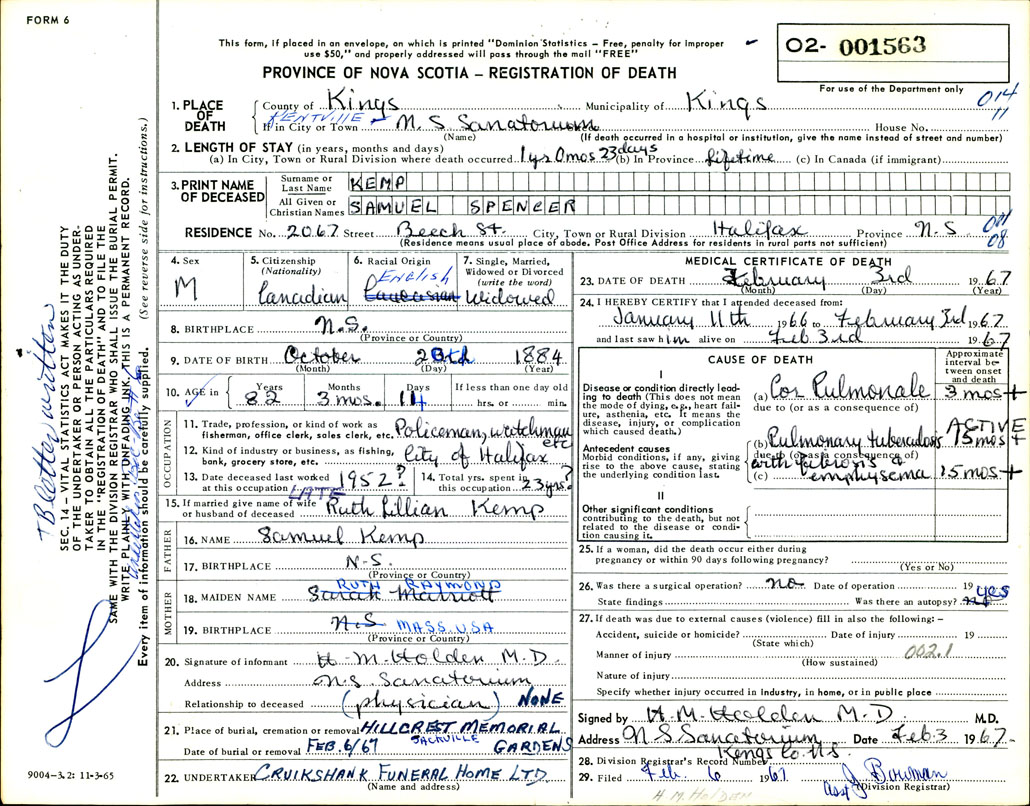 FORM 6
This form, if placed in an envelope, on which is printed "Dominion Statistics – Free, penalty for improper
use $50," and properly addressed will pass through the mail "FREE"
PROVINCE OF NOVA SCOTIA – REGISTRATION OF DEATH
02- 001563
For use of the Department only
014
11
1. PLACE OF DEATH
County of Kings Municipality of Kings
KENTVILLE
If in City or Town N.S. Sanatorium House No.
(Name) (If death occurred in a hospital or institution, give the name instead of street and number)
2. LENGTH OF STAY (in years, months and days)
(a) In City, Town or Rural Division where death occurred 1 yr 0 mos 23 days (b) In Province Lifetime (c) In Canada (if immigrant)
3. PRINT NAME OF DECEASED
Surname or Last Name KEMP
All Given or Christian Names SAMUEL SPENCER
RESIDENCE No. 2067 Street Beech St. City, Town or Rural Division Halifax Province N.S.
08
(Residence means usual place of abode. Post Office Address for residents in rural parts not sufficient)
4. Sex
M
5. Citizenship
(Nationality)
Canadian
6. Racial Origin
ENGLISH
Caucasian
7. Single, Married, Widowed or Divorced
(write the word)
Widowed
8. BIRTHPLACE N.S.
(Province or Country)
9. DATE OF BIRTH October 1884
(Month) (Day) (Year)
10. AGE in Years Months Days If less than one day old
82 3 mos. hrs. or min.
OCCUPATION
11. Trade, profession, or kind of work as fisherman, office clerk, sales clerk, etc. Policeman, watchman etc
12. Kind of industry or business, as fishing, bank, grocery store, etc. City of Halifax
13. Date deceased last worked at this occupation 1952?
14. Total yrs. spent in this occupation 23 yrs.?
LATE
15. If married give name of wife or husband of deceased Ruth Lillian Kemp
FATHER
16. NAME Samuel Kemp
17. BIRTHPLACE N.S.
(Province or Country)
MOTHER
RUTH RAYMOND
18. MAIDEN NAME Sarah Marriott
19. BIRTHPLACE N.S. MASS. USA
(Province or Country)
20. Signature of informant H. M. Holden M.D.
Address N.S. Sanatorium
Relationship to deceased (physician) NONE
21. Place of burial, cremation or removal HILLCREST MEMORIAL
SACKVILLE GARDENS
Date of burial or removal FEB. 6/67
22. UNDERTAKER CRUIKSHANK FUNERAL HOME LTD.
(Name and address)
MEDICAL CERTIFICATE OF DEATH
23. DATE OF DEATH February 3rd 1967
(Month) (Day) (Year)
24. I HEREBY CERTIFY that I attended deceased from:
January 11th 1966 to February 3rd 1967
and last saw him alive on Feb. 3rd 1967
CAUSE OF DEATH
Approximate interval between onset and death
I
Disease or condition directly leading to death (This does not mean the mode of dying, e.g., heart failure, asthenia, etc. It means the disease, injury, or complication which caused death.)
(a) Cor Pulmonale 3 mos +
due to (or as a consequence of)
ACTIVE
Antecedent causes
Morbid conditions, if any, giving rise to the above cause, stating the underlying condition last.
(b) Pulmonary tuberculosis 15 mos +
due to (or as a consequence of)
with fibrosis &
(c) emphysema 15 mos +
II
Other significant conditions
contributing to the death, but not related to the disease or condition causing it.
25. If a woman, did the death occur either during pregnancy or within 90 days following pregnancy?
(Yes or No)
26. Was there a surgical operation? no Date of operation 19
State findings Was there an autopsy? yes
27. If death was due to external causes (violence) fill in also the following: –
Accident, suicide or homicide? Date of injury 19
(State which)
Manner of injury 002.1
(How sustained)
Nature of injury
Specify whether injury occurred in industry, in home, or in public place
Signed by H. M. Holden M.D. M.D.
Address N S Sanatorium Date Feb. 3 1967
Kings Co. N.S.
28. Division Registrar's Record Number
29. Filed Feb. 6 1967 asst J Bowman
(Division Registrar)
H. M. Holden
9004-3.2: 11-3-65
TB letter written
SEC. 14 – VITAL STATISTICS ACT MAKES IT THE DUTY
OF THE UNDERTAKER OR PERSON ACTING AS UNDERTAKER
TO OBTAIN ALL THE PARTICULARS REQUIRED
IN THE "REGISTRATION OF DEATH" AND TO FILE THE
SAME WITH THE DIVISION REGISTRAR WHO SHALL ISSUE THE BURIAL PERMIT.
WRITE PLAINLY WITH UNFADING INK, THIS IS A PERMANENT RECORD.
Every item of information should be carefully supplied. (See reverse side for instructions.)